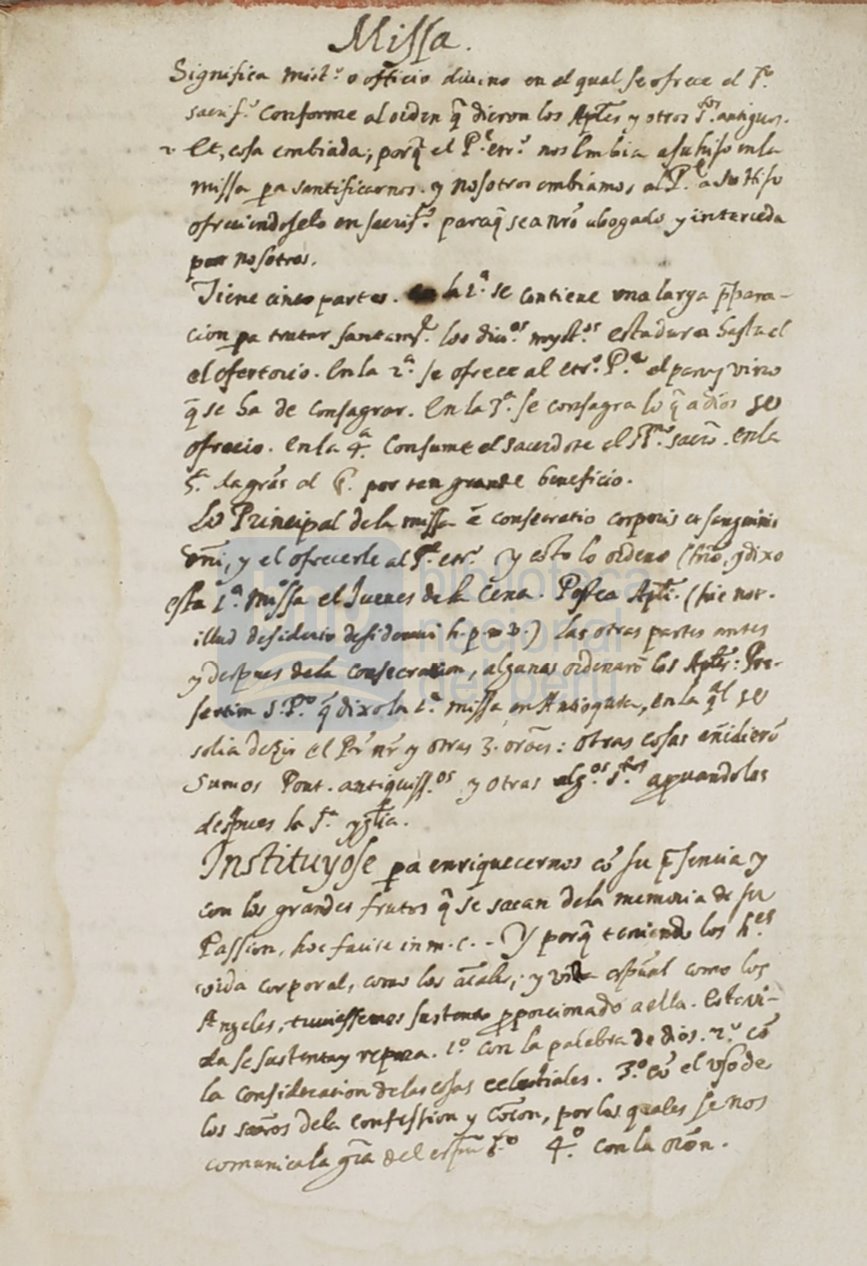 Missa.
Significa mist.º o officio diuino en el qual se ofrece el S.º
sacrif.º conforme al orden q̃ dieron los Aptẽs y otros P.es antiguos.
2. Et, cosa embiada, porq̃ el P.e etr.º nos embia a su hijo en la
missa pa santificarnos. y nosotros embiamos al P.e a su Hijo
ofreciendoselo en sacrif.º paraq̃ sea nrõ abogado y interceda
por nosotros.
Tiene cinco partes. en la 1.ª se contiene vna larga p̃para-
cion pa tratar santam.te los diui.os myst.os esta dura hasta el
el ofertorio. En la 2.ª se ofrece al etr.º P.e el pan y vino
q̃ se ha de consagrar. En la 3.ª se consagra lo q̃ a dios se
ofrecio. en la 4.ª Consume el sacerdote el SS.mo sacrõ. en la
5.ª da gr̃as al P. por tan grande beneficio.
Lo Principal de la missa ẽ consecratio corporis et sanguinis
Dñi, y el ofrecerle al P.e etr.º y esto lo ordeno Xr̃o, y dixo
esta 1.ª Missa el Jueues de la Cena. Postea Aptĩ. (hic nor.
illud desiderio desideraui h. p. m. v.) las otras partes antes
y despues de la consecracion, algunas ordenarõ los Aptẽs: Pre-
sertim S. P.º q̃ dixo la 1.ª missa en Antioquia, en la q̃l se
solia dezir el Pr̃ nr̃ y otras 3. orões: otras cosas añidierõ
Sumos Pont. antiquiss.os y otras alg.os s.tos aprouandolas
despues la S.ta ygl̃ia.
Instituyose pa enriquecernos cõ su p̃sencia y
con los grandes frutos q̃ se sacan de la memoria de su
Passion, hoc facite in m. c. - Y porq̃ teniendo los h.es
vida corporal, como los aĩales, y vida esp̃ual como los
Angeles, tuuiessemos sustento p̃porcionado a ella. Esta vi-
da se sustenta y repara. 1.º con la palabra de dios. 2.º cõ
la consideracion de las cosas celestiales. 3.º cõ el vso de
los sacrõs de la confession y Comõn, por los quales se nos
comunica la gr̃a del esp̃u s.to 4.º con la orõn.
biblioteca
nacional
del perú